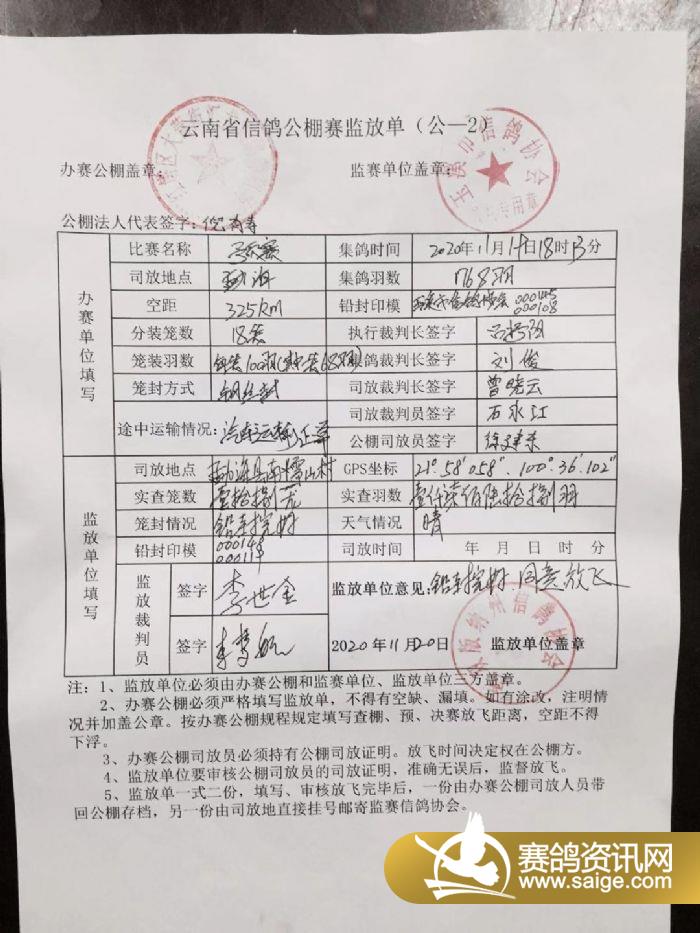 云南省信鸽公棚赛监放单（公—2）
办赛公棚盖章： 监赛单位盖章：
玉溪市信鸽协会
公棚法人代表签字：
办赛单位填写
比赛名称 集鸽时间 2020年11月 日18时 分
司放地点 勐海 集鸽羽数 1768羽
空距 325km 铅封印模
分装笼数 18笼 执行裁判长签字
笼装羽数 集鸽裁判长签字 刘俊
笼封方式 钢丝封 司放裁判长签字 曹晓云
途中运输情况：汽车运输正常 司放裁判员签字 石永江
公棚司放员签字 徐建东
监放单位填写
司放地点 勐海县南糯山村 GPS坐标 21°58′058″.100°36′102″
实查笼数 壹拾捌笼 实查羽数 壹仟柒佰陆拾捌羽
笼封情况 铅封完好 天气情况 晴
铅封印模 司放时间 年 月 日 时 分
监放裁判员
签字 李世金 监放单位意见：铅封完好 同意放飞
签字 2020年11月20日 监放单位盖章
西双版纳州信鸽协会
注：1、监放单位必须由办赛公棚和监赛单位、监放单位三方盖章。
2、办赛公棚必须严格填写监放单，不得有空缺、漏填。如有涂改，注明情
况并加盖公章。按办赛公棚规程规定填写查棚、预、决赛放飞距离，空距不得
下浮。
3、办赛公棚司放员必须持有公棚司放证明。放飞时间决定权在公棚方。
4、监放单位要审核公棚司放员的司放证明，准确无误后，监督放飞。
5、监放单一式二份，填写、审核放飞完毕后，一份由办赛公棚司放人员带
回公棚存档，另一份由司放地直接挂号邮寄监赛信鸽协会。
赛鸽资讯网
www.saige.com